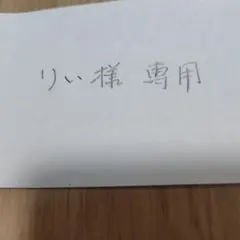 りい様 専用